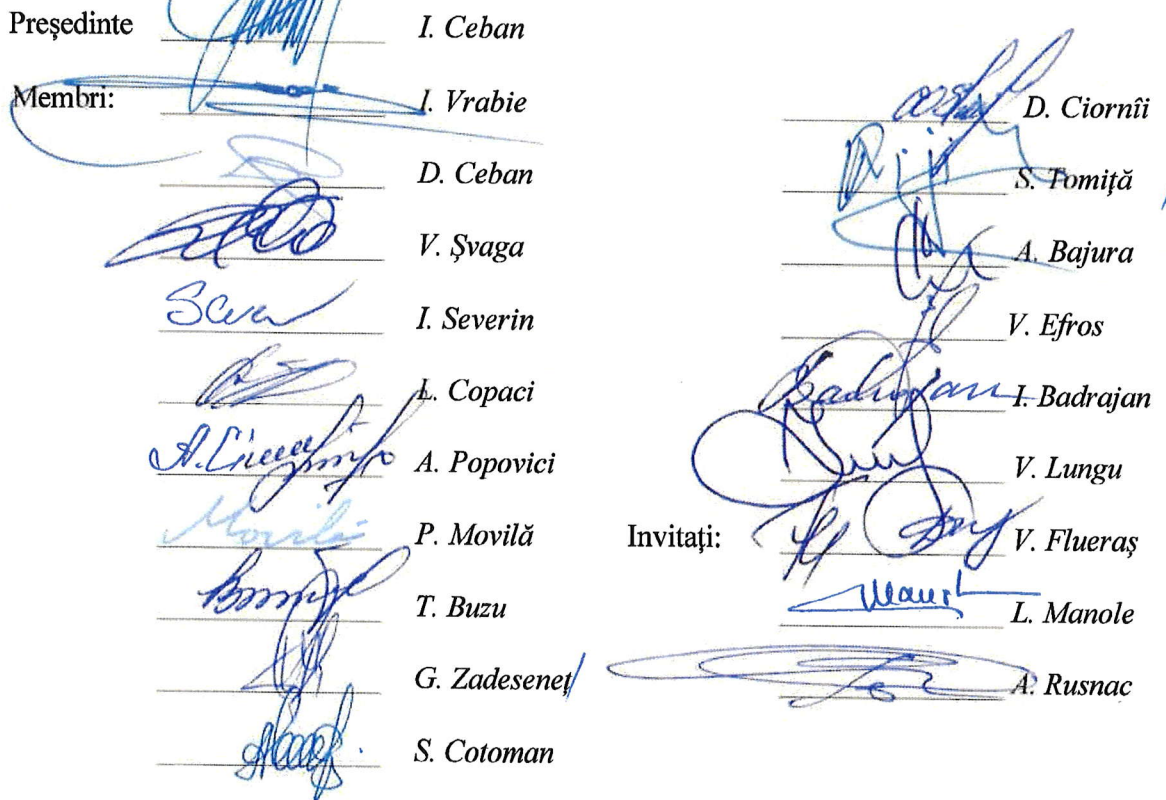 Președinte I. Ceban
Membri: I. Vrabie
D. Ceban
V. Șvaga
I. Severin
L. Copaci
A. Popovici
Movilă P. Movilă
T. Buzu
G. Zadeseneț
S. Cotoman
D. Ciornîi
S. Tomiță
A. Bajura
V. Efros
Badrajan I. Badrajan
V. Lungu
Invitați: V. Flueraș
L. Manole
A. Rusnac